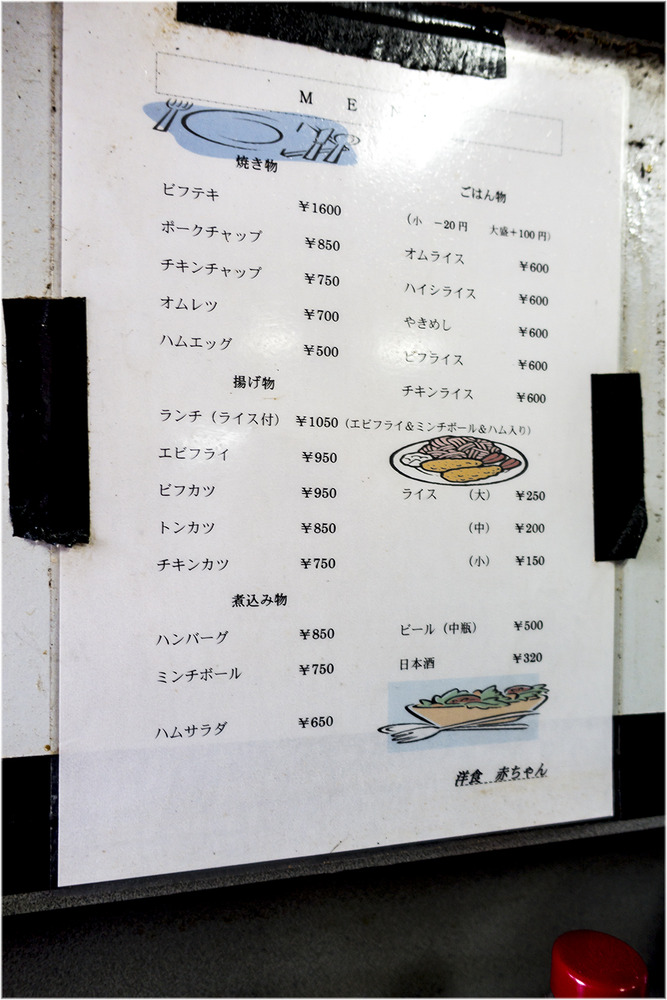 M E N
焼き物
ビフテキ ¥1600
ポークチャップ ¥850
チキンチャップ ¥750
オムレツ ¥700
ハムエッグ ¥500
揚げ物
ランチ（ライス付） ¥1050（エビフライ＆ミンチボール＆ハム入り）
エビフライ ¥950
ビフカツ ¥950
トンカツ ¥850
チキンカツ ¥750
煮込み物
ハンバーグ ¥850
ミンチボール ¥750
ハムサラダ ¥650
ごはん物
（小 −20円 大盛＋100円）
オムライス ¥600
ハイシライス ¥600
やきめし ¥600
ビフライス ¥600
チキンライス ¥600
ライス （大） ¥250
（中） ¥200
（小） ¥150
ビール（中瓶） ¥500
日本酒 ¥320
洋食 赤ちゃん